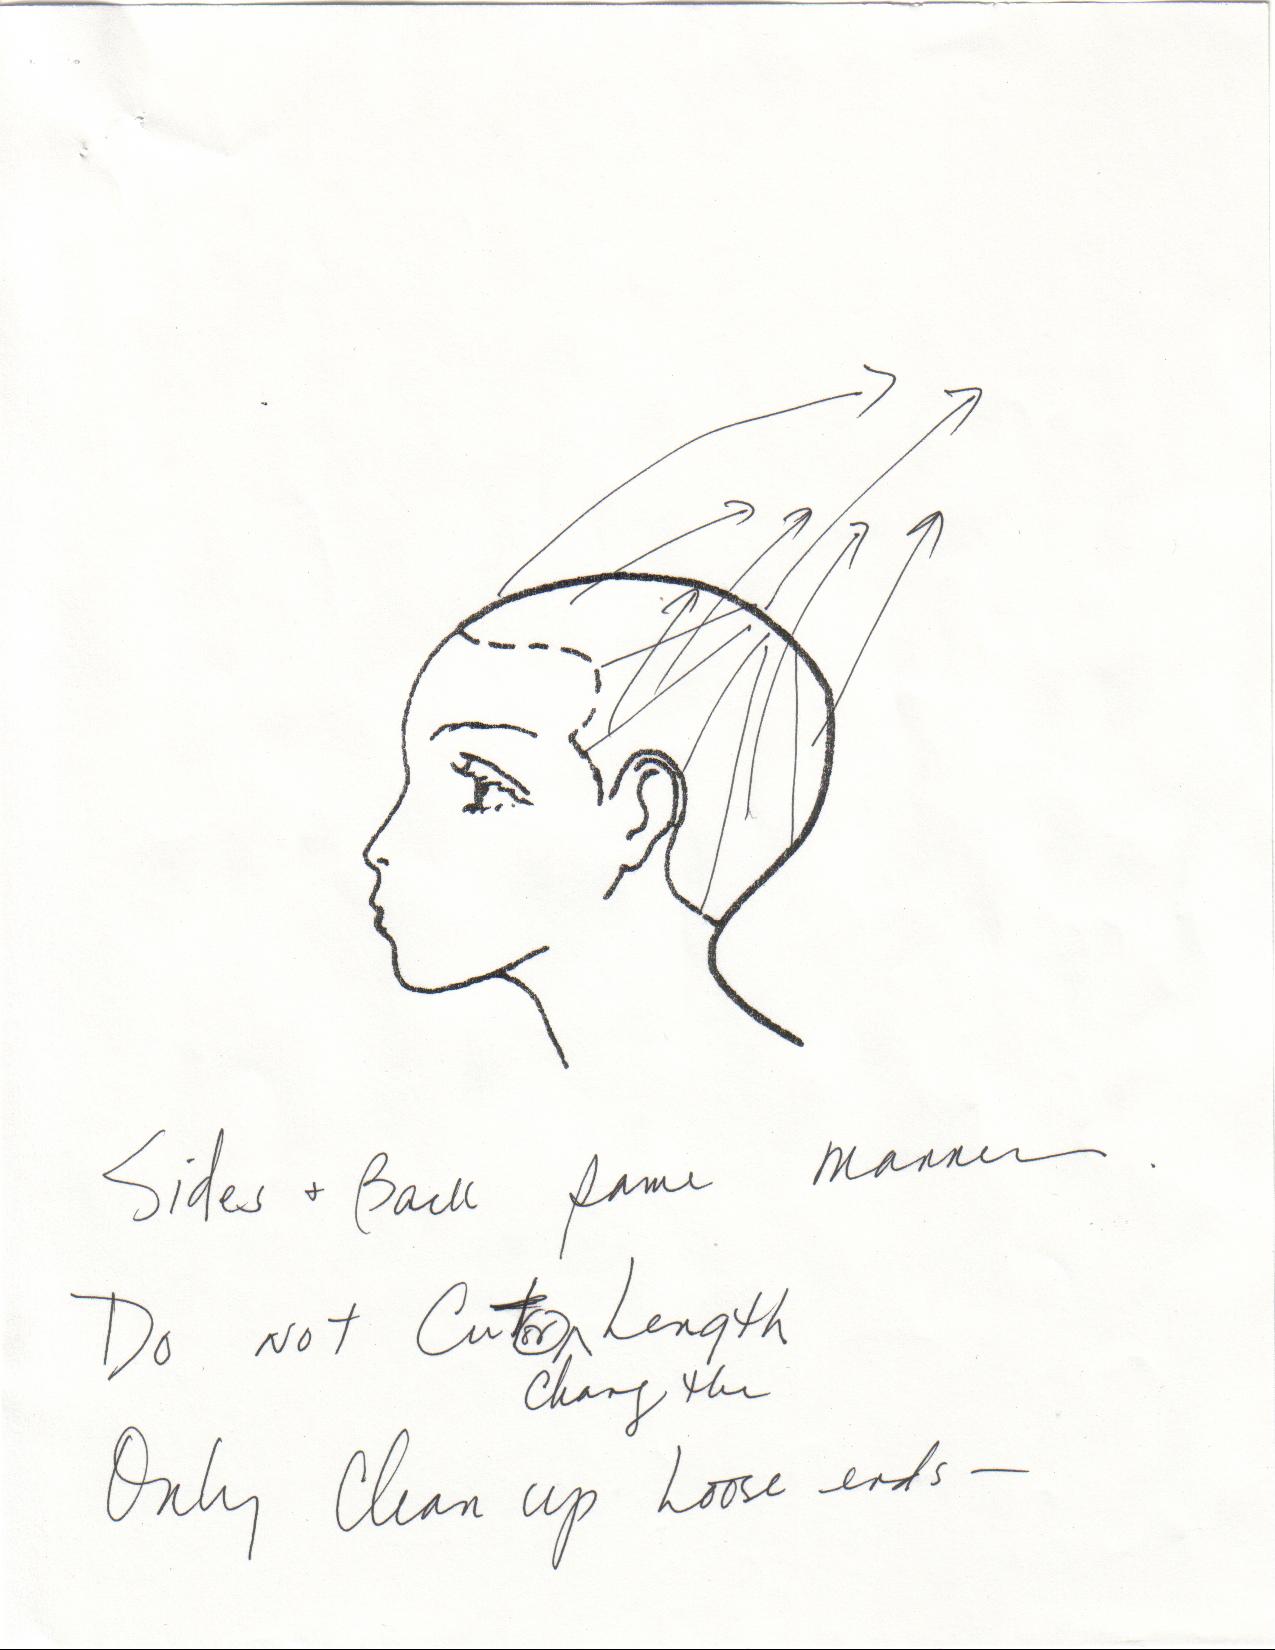 Sides + Back same manner.
Do not Cut or Length
chang the
Only Clean up Loose ends —